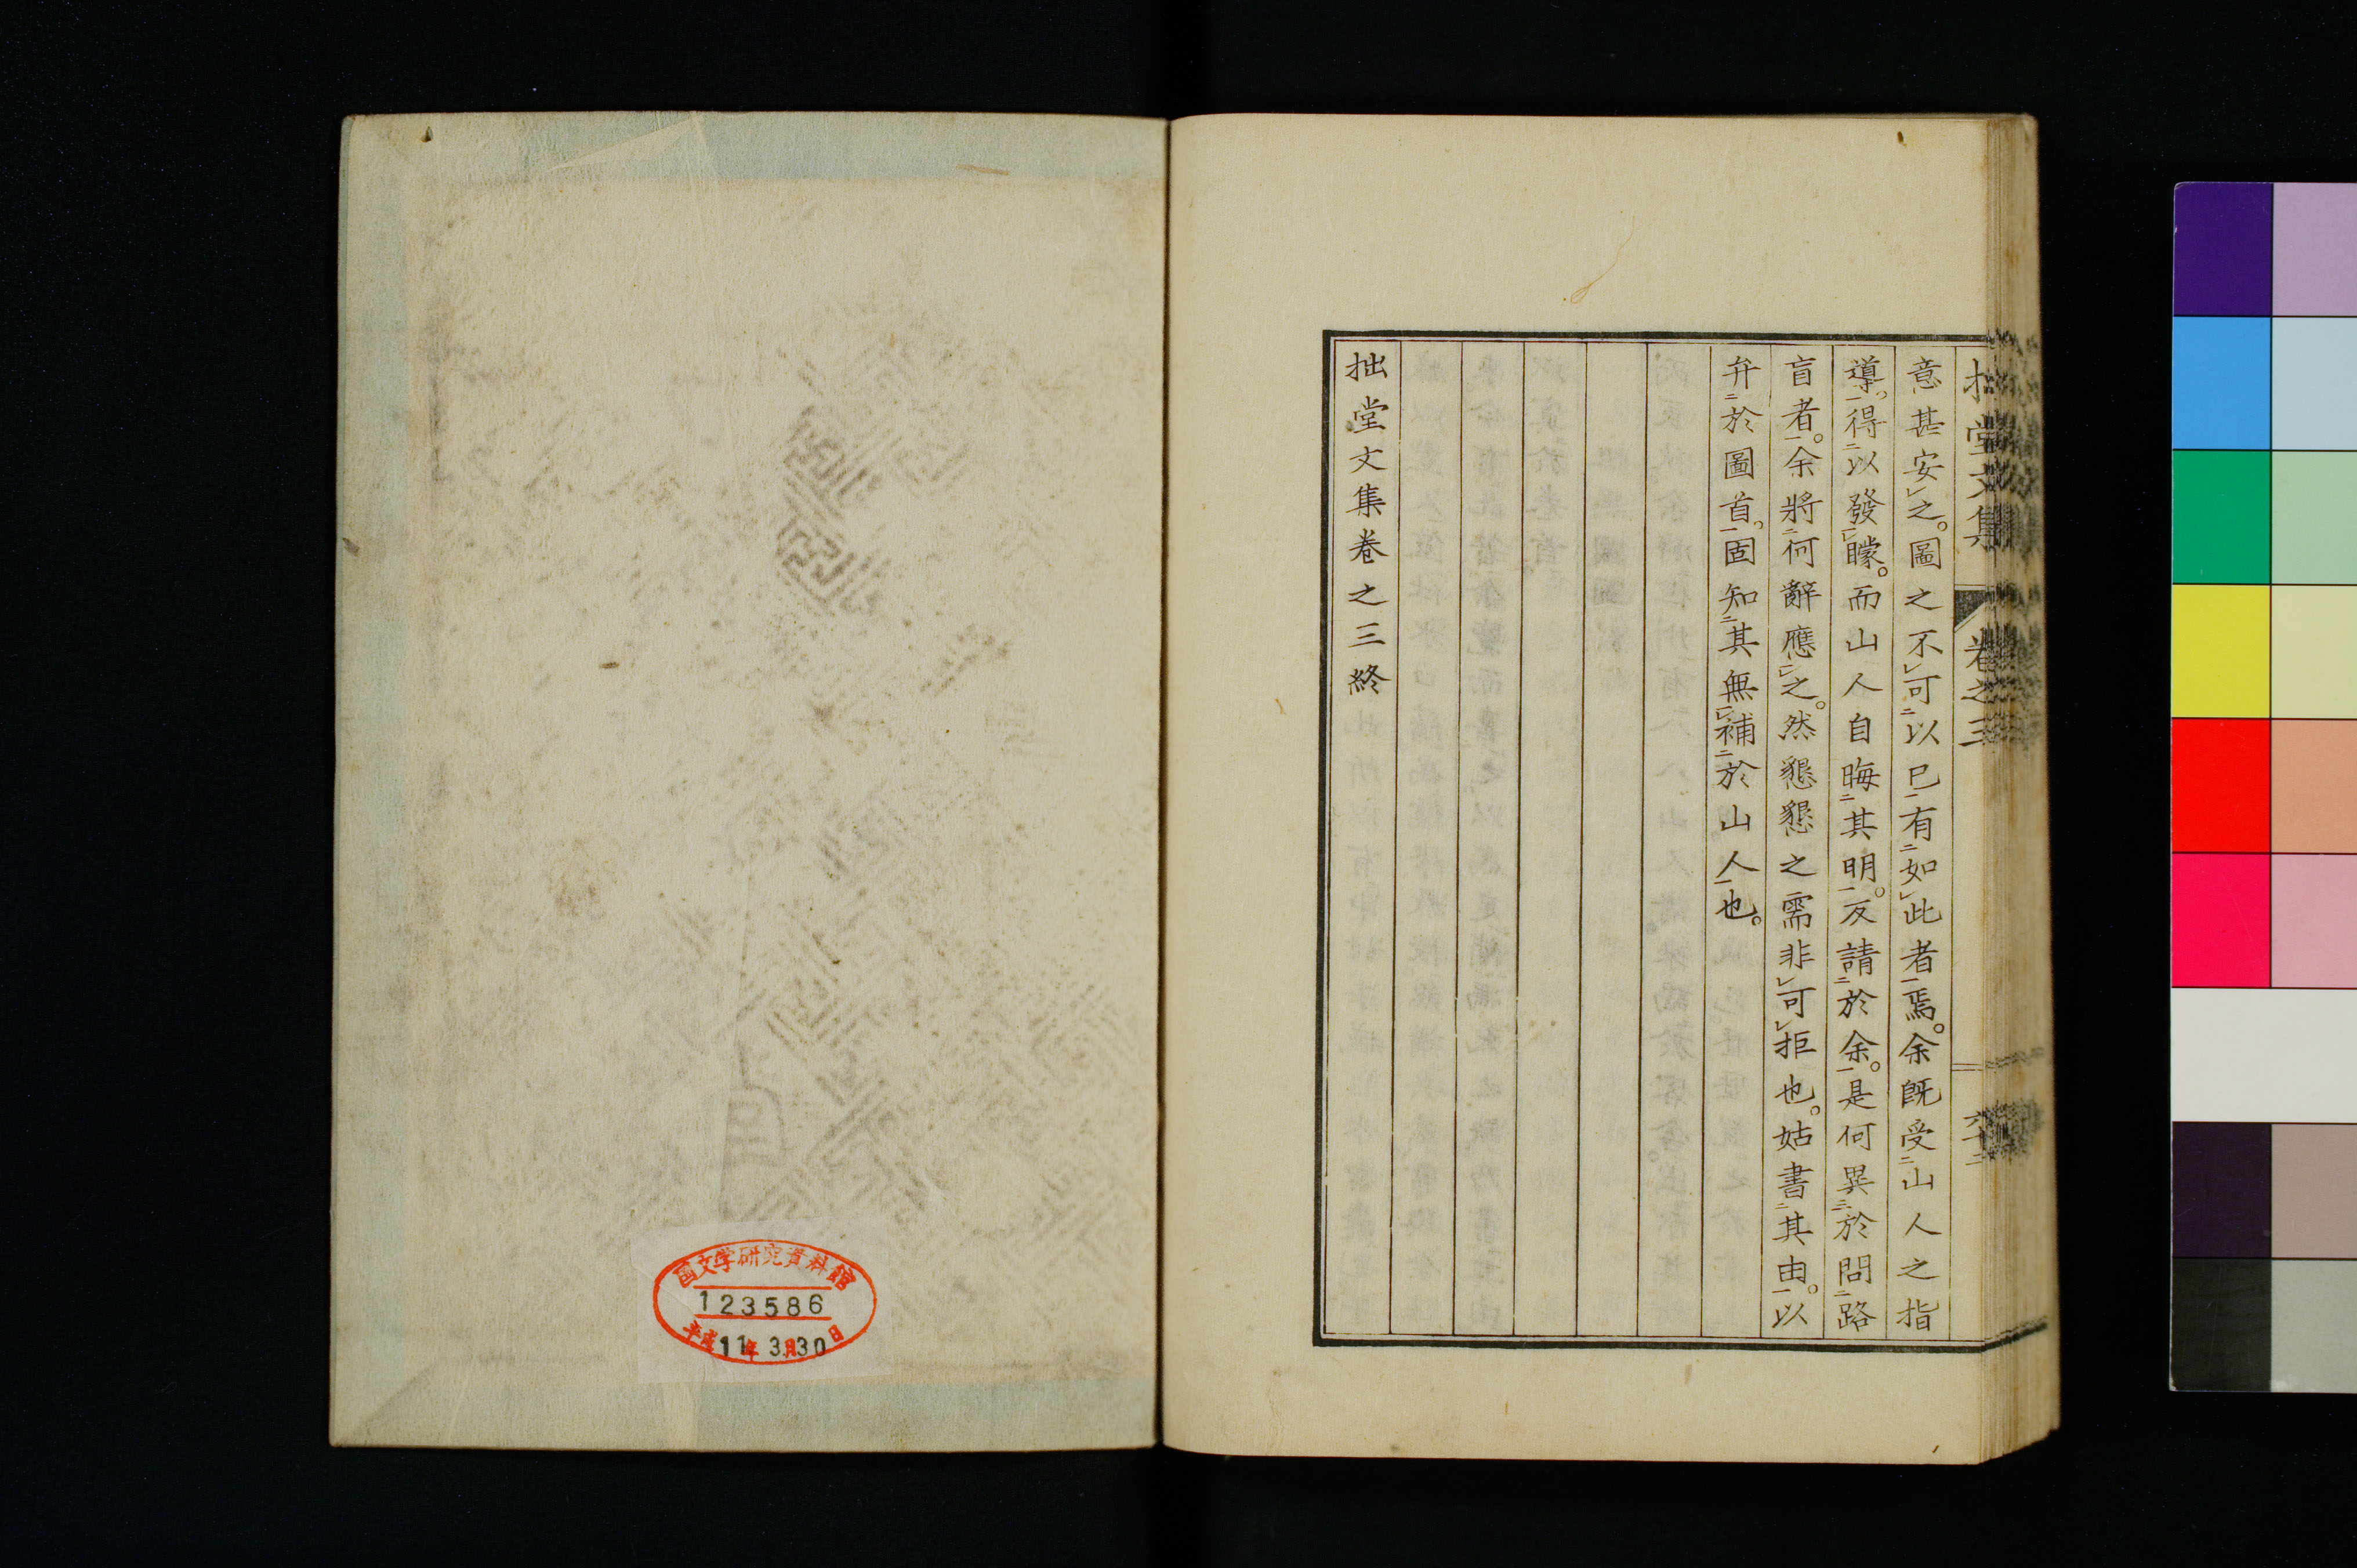 拙堂文集 卷之三 六十二
意甚安㆑之。圖之不㆑可㆓以已㆒有㆓如㆑此者㆒焉。余既受㆓山人之指
導㆒。得㆔以發㆓矇。而山人自晦㆓其明㆒。反請㆓於余㆒。是何異㆘於問㆓路
盲者㆒。余將㆓何辭應㆑之。然懇懇之需非㆑可㆑拒也。姑書㆓其由㆒。以
弁㆓於圖首㆒。固知㆔其無㆑補㆓於山人㆒也。
拙堂文集卷之三終
国文学研究資料館
123586
平成11年3月30日